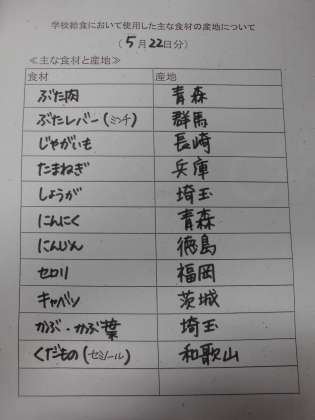 学校給食において使用した主な食材の産地について
(5月22日分)
≪主な食材と産地≫
食材 産地
ぶた肉 青森
ぶたレバー(ミンチ) 群馬
じゃがいも 長崎
たまねぎ 兵庫
しょうが 埼玉
にんにく 青森
にんじん 徳島
セロリ 福岡
キャベツ 茨城
かぶ・かぶ葉 埼玉
くだもの(セミノール) 和歌山